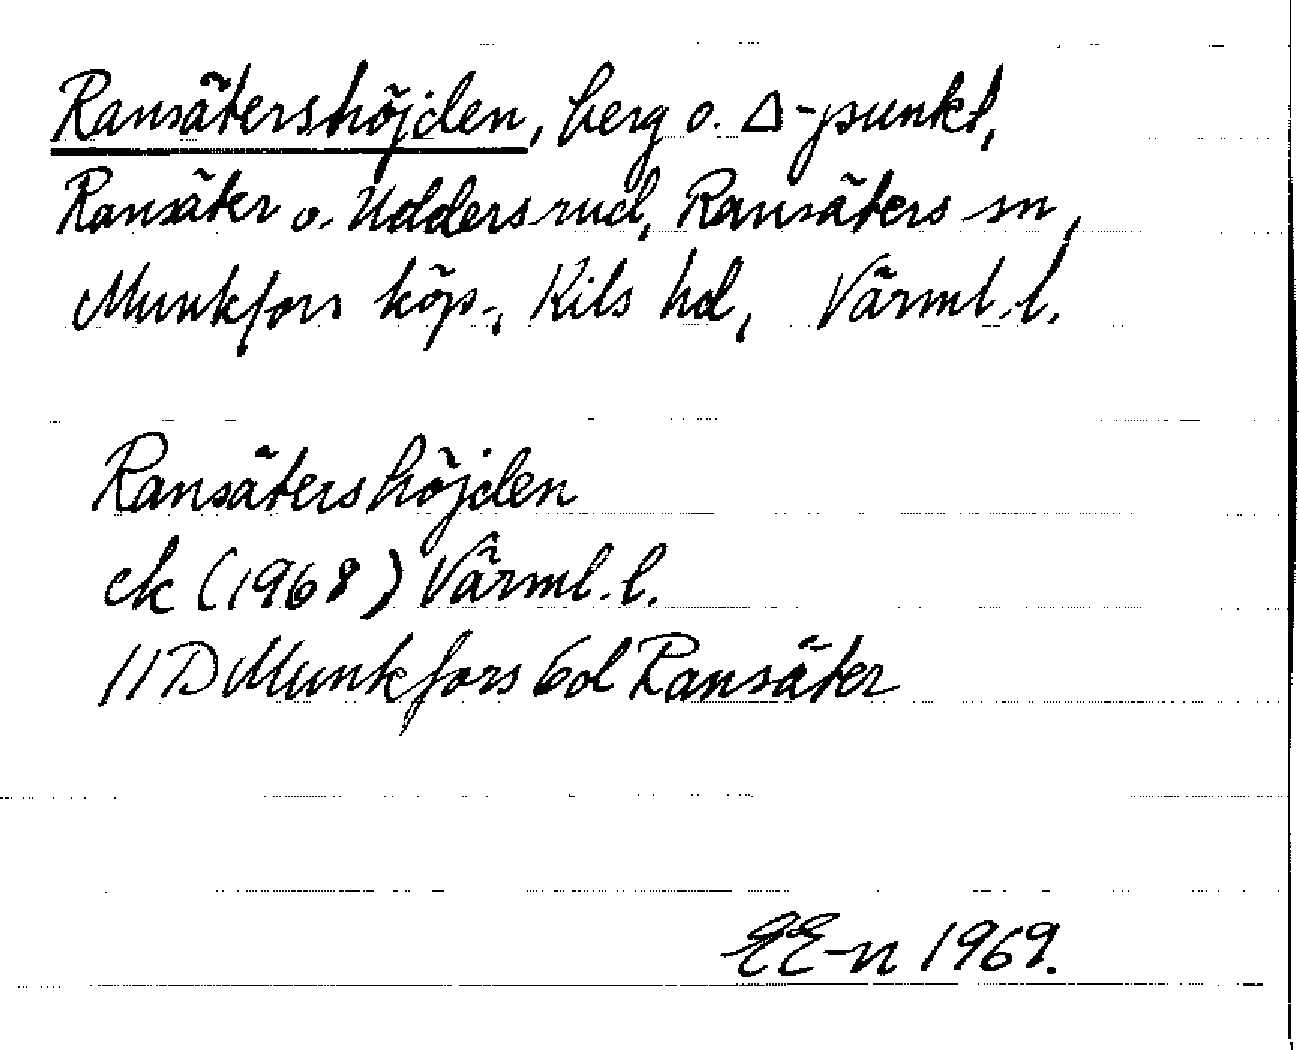 Ransätershöjden, berg o. Δ-punkt,
Ransäter o. Uddersrud, Ransäters sn,
Munkfors köp., Kils hd, Värml. l.
Ransätershöjden
ek (1968) Värml. l.
11D Munkfors 6d Ransäter
EE-n 1969.